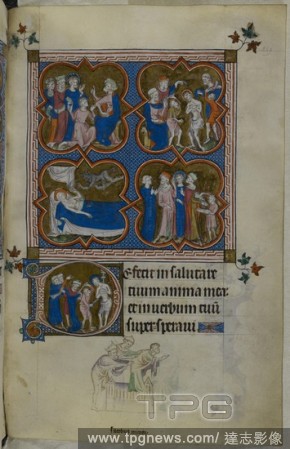 Defecit in salutare
tuum anima mea
et in verbum tuū
super speravi
TPG
www.tpgnews.com / 達志影像